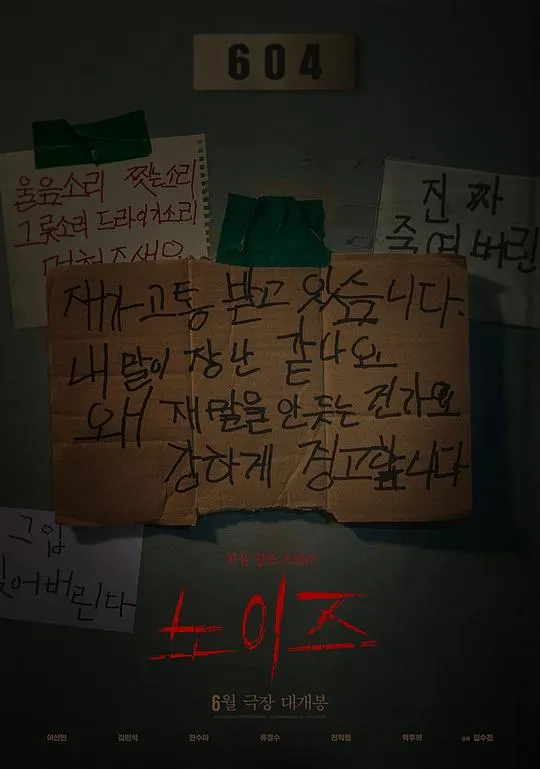 604
울음소리 찢는소리
그릇소리 드라이기소리
멈춰주세요
진짜
죽여버린
재가 고통 받고 있습니다.
내 말이 장난 같나요
왜 재 말을 안듣는 건가요
강하게 경고합니다
그 입
찢어버린다
현실 공포 스릴러
노이즈
6월 극장 대개봉
이선빈 김민석 한수아 류경수 전익령 백주희 감독 김수진